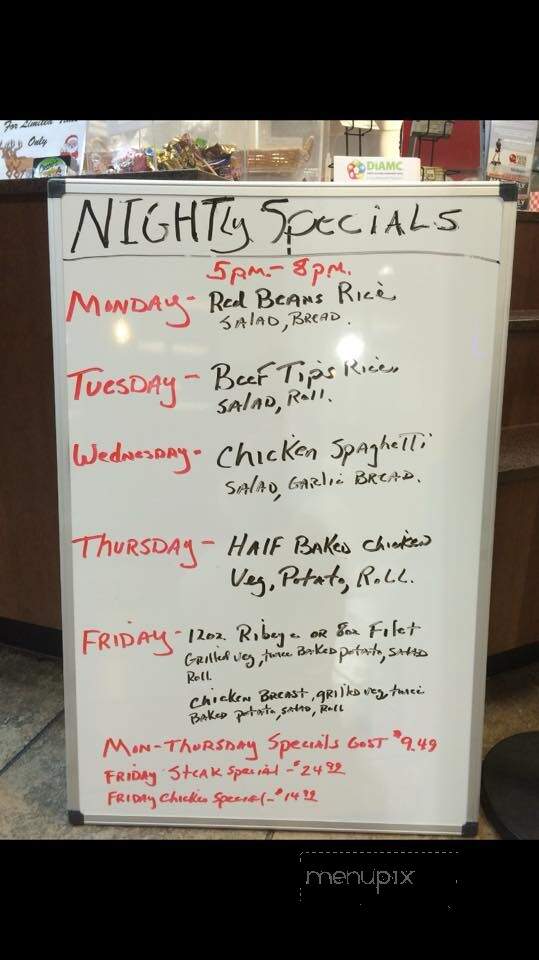 For Limited Time
Only
DiAMC
NIGHTly SpeciALS
5pm - 8pm.
MONDAY - Red BEANS Rice
SALAD, BREAD.
TUESDAY - Beef Tips Rice
SALAD, Roll.
Wednesday - Chicken Spaghetti
SALAD, GARlic BREAD.
THURSDAY - HALF BAKED Chicken
Veg, Potato, RoLL.
FRIDAY - 12oz. Ribeye OR 8oz Filet
GRilled Veg, twice BAKED potato, SALAD
Roll
Chicken BREAST, gRilled veg, twice
BAKED potato, SALAD, Roll
MON-THURSDAY SpeciALS COST $9.49
FRIDAY STEAK Special - $24.99
FRIDAY Chicken Special - $14.99
menupix